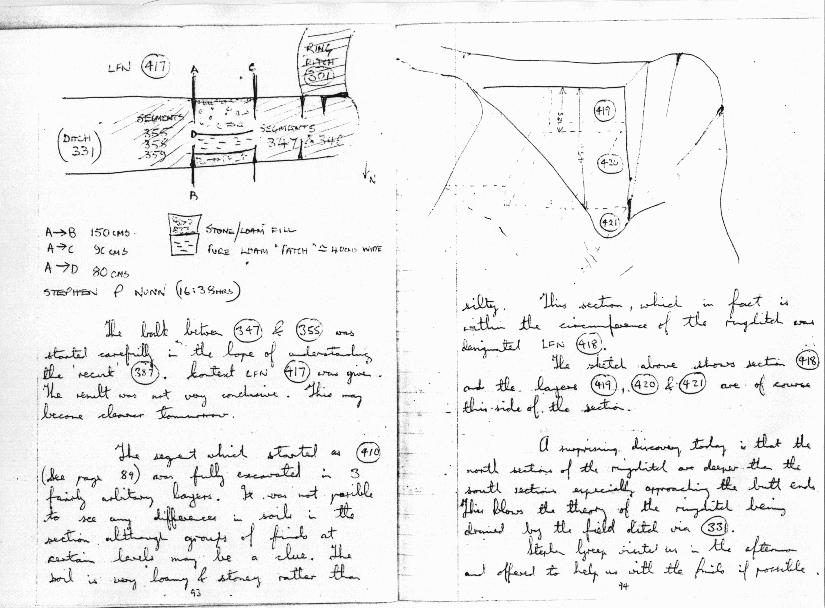 LFN (417)
A
C
RING
DITCH
(301)
(DITCH
331)
SEGMENTS
355
358
359
D
SEGMENTS
347 & 348
N
B
A→B 150 CMS.
A→C 90 CMS
A→D 80 CMS
STONE/LOAM FILL
PURE LOAM "PATCH" ≏ 40CMS WIDE
STEPHEN P NUNN (16:38HRS)
The balk between (347) & (355) was
started carefully in the hope of understanding
the 'recut' (387). Context LFN (417) was given.
The result was not very conclusive. This may
become clearer tomorrow.
The segment which started as (410)
(See page 89) was fully excavated in 3
fairly arbitrary layers. It was not possible
to see any differences in soils in the
section although groups of finds at
certain levels may be a clue. The
soil is very loamy & stoney rather than
93
(419)
(420)
(421)
silty. This section, which in fact is
within the circumference of the ringditch was
designated LFN (418).
The sketch above shows section (418)
and the layers (419), (420) & (421) are of course
this side of the section.
A surprising discovery today is that the
north sections of the ringditch are deeper than the
south sections especially approaching the butt ends
This blows the theory of the ringditch being
drained by the field ditch via (331).
Stephen Greep visited us in the afternoon
and offered to help us with the finds if possible.
94